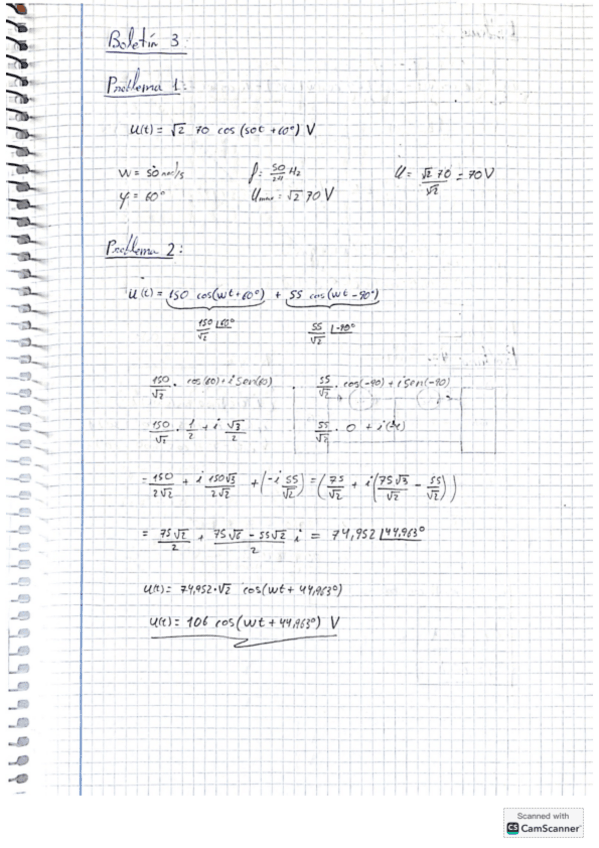 Boletín 3:
Problema 1:
U(t) = √2 70 cos(50t + 60°) V
W = 50 rad/s f = 50/2π Hz U = √2 70/√2 = 70V
φ = 60° Umax = √2 70 V
Problema 2:
U(t) = 150 cos(wt + 60°) + 55 cos(wt - 90°)
150/√2 ∠60° 55/√2 ∠-90°
150/√2 · cos(60) + i sen(60) . 55/√2 · cos(-90) + i sen(-90)
150/√2 · 1/2 + i √3/2 55/√2 · 0 + i(-1)
= 150/2√2 + i 150√3/2√2 + (-i 55/√2) = (75/√2 + i(75√3/√2 - 55/√2))
= 75√2/2 + 75√6 - 55√2/2 i = 74,952 ∠44,963°
U(t) = 74,952·√2 cos(wt + 44,963°)
U(t) = 106 cos(wt + 44,963°) V
Scanned with
CS CamScanner